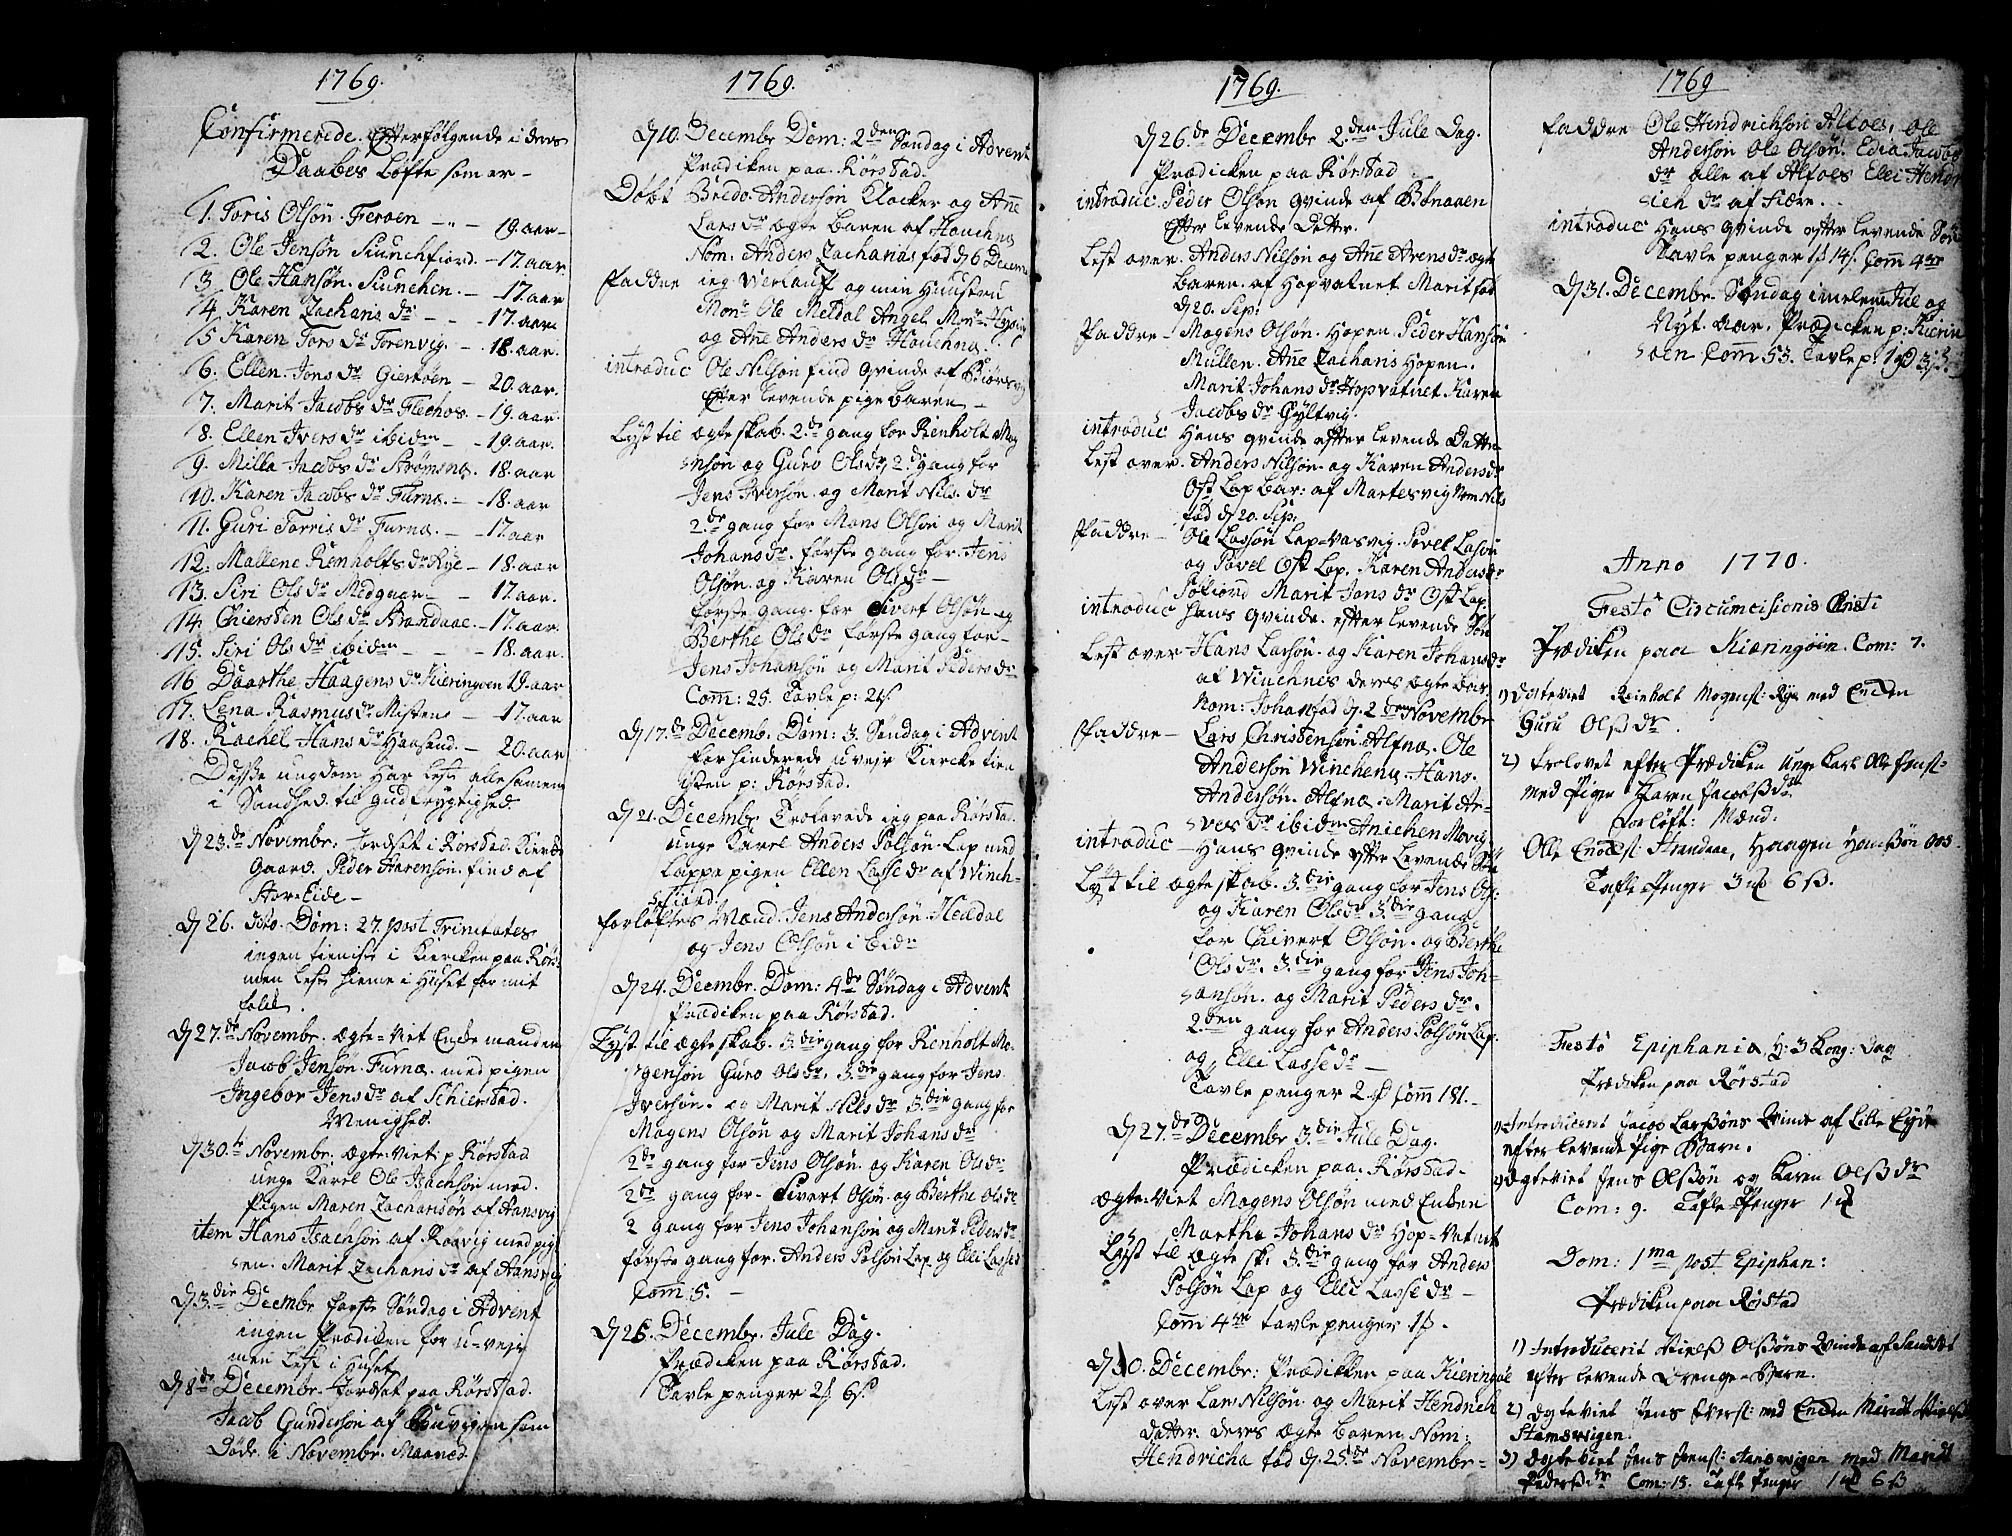 1769.
Confirmerede Efterfølgende i deres
Daabes Løfte som er -
1. Toris Olsøn Feroen - " - 19. aar -
2. Ole Jensøn Siunchfiord. - 17. aar
3. Ole Hansøn. Siunchen. - 17. aar
4. Karen Zacharis dr - - 17. aar.
5 Karen Tors dr Torenvig. - 18. aar.
6. Ellen Jons dr Gierøen - 20. aar.
7. Marit Jacobs dr Flechos. - 19. aar.
8. Ellen Ivers dr ibidm - - 19. aar.
9. Milla Jacobs dr Strømsnæs. 18. aar
10. Karen Jacobs dr Furnæ. - 18. aar
11. Guri Torris dr Furnæ. - 17. aar
12. Mallene Renholts dr Rye - 18. aar
13. Siri Ols dr Medgaar - - 17. aar.
14. Chiersten Ols dr Strandaae. - 17. aar.
15. Siri Ols dr ibidm - - - 18. aar.
16 Daarthe Haagens dr Kieringøen 19. aar
17. Lena Rasmus dr Misten - 17. aar
18. Rachel Hans dr Haasand. - 20. aar
Disse ungdom har lest alle samen
i Sandhed til gudfrygtighed
d 23. de Novembr. Jordsat i Rørstad Kierke
Gaard. Peder Arensøn find af
Storeide -
d 26. dito. Dom: 27. post Trinitates
ingen tieniste i Kiercken paa Rørs:
men leste hieme i Huset for mit
folck.
d 27. de Novembr. ægte-viet Enckemanden
Jacob Jensøn Furnæ. med pigen
Ingebor Jens dr af Schierstad.
Menighed.
d 30. te Novembr. ægte-viet p Rørstad
unge Karel Ole Isachsøn med
Pigen Maren Zacharisøn af Hansvig
item Hans Isachsøn af Røsvig med pige
en. Marit Zachans dr af Hansvig
d 3. die Decembr første Søndag i Advent
ingen Prædicken for u-veir
men leste i Huset
d 8 de Decembr. Jordsat paa Rørstad.
Jacob Gundersøn af som
Døde i Novembr. Maaned.
1769.
d 10. Decembr Dom: 2 den Søndag i Advent
Prædicken paa Rørstad.
Døbt Bredo Andersøn Klocker og Ane
Lars dr ægte Baren af Houchnæs
Nom: Anders Zacharias fød d 6 Decem
Faddre ieg Werlauf og min Huustru
Monr Ole Meldal Angel Monr
og Ane Anders dr Houchnæs.
introduc Ole Nilsøn find qvinde af Biørsvig
Efter levende pige baren -
Lyst til ægteskab. 2. de gang for Renholt Mog
ensøn og Guro Ols dr, 2. de gang for
Jens Iversøn. og Marit Nils. dr
2. de gang for Mons Olsøn og Marit
Johans dr. første gang for Jens
Olsøn. og Karen Ols dr -
første gang for Sivert Olsøn og
Berthe Ols dr første gang for
Jens Johansøn og Marit Peders dr
Com: 25. Tavle p:
d 17. de Decemb. Dom: 3. Søndag i Advent
forhinderede uveir Kiercketien
isten p: Rørstad.
d 21. Decembr Trolavede ieg paa Rørstad.
unge Karel Anders Polsøn Lap med
Lappe pigen Ellen Lasse dr af Winch-
fiord.
forløftes Mænd. Jens Andersøn Heldal
og Jens Olsøn i Eide
d 24. Decembr. Dom: 4 de Søndag i Advent
Prædicken paa Rørstad.
Lyst til ægteskab. 3. die gang for Renholt Mo-
gensøn Guro Ols dr. 3. die gang for Jens
Iversøn. og Marit Nils dr 3. die gang for
Mogens Olsøn og Marit Johans dr
2 de gang for Jens Olsøn. og Karen Ols dr
2 de gang for Sivert Olsøn og Berthe Ols dr
2 gang for Jens Johansøn og Marit Peders dr
første gang for. Anders Polsøn Lap og Elli Lasse dr
Com: 5. -
d 25. Decembr. Jule Dag.
Prædicken paa Rørstad.
Tavle penger
1769.
d 26. de Decembr 2. den Jule Dag.
Prædicken paa Rørstad
introduc. Peder Olsøn qvinde af Bønaaen
Efter levende Datter.
Lest over. Anders Nilsøn og Ane Arens dr ægte
Baren. af Hopvatnet Marit fød
d 20. Sep:
Faddre - Mogens Olsøn. Hopen. Peder Hansøn
Mullen. Ane Zachans Hopen.
Marit Johans dr Hopvatnet Karen
Jacobs dr Gyltvig.
introduc Hans qvinde efter levende Datter
Lest over. Anders Nilsøn. og Karen Anders dr
Ost Lap bar: af Martesvig Nom: Nils
fød d 20. Sep.
Faddre - Ole Lassøn Lap-vasvig. Povel Lasøn
og Povel Ost Lap. Karen Anders dr
Søfiord Marit Jons dr Ost Lap
introduc Hans qvinde. efter levende Søn
Lest over Hans Larsøn. og Karen Johans dr
af Winchnes deres ægte bar.
Nom: Johan fød d. 2 den Novembr
Faddre - Lars Christensøn. Alfnæs. Ole
Andersøn Winchenes. Hans.
Andersøn. Alfnæs. Marit Ar-
ves dr ibidm Anichen Movig
introduc - Hans qvinde efter levende Søn
Lyst til ægteskab. 3. die gang for Jens Ols:
og Karen Ols dr 3. die gang
for Chivert Olsøn. og Berthe
Ols dr. 3. die gang for Jens Joh-
ansøn. og Marit Peders dr.
2. den gang for Anders Polsøn Lap.
og Elli Lasse dr -
Tavle penger 2 Com 181.
d 27. de Decembr 3. die Jule Dag.
Prædicken paa Rørstad.
ægte-Viet Mogens Olsøn med Enken
Martha Johans dr Hop-Vatnet
Lyst til ægte sk: 3. die gang for Anders
Polsøn Lap og Elli Lasse dr -
Com 4re tavle penger
d 30. Decembr: Prædicken paa Kieringøe
Lest over Lars Nilsøn. og Marit Hendrich
datter. deres ægte baren. Nom:
Hendricha fød d. 25. de Novembr-
1769
Faddre Ole Hendrichsøn Alfoes. Ole
Andersøn Ole Olsøn. Edia Jacobs
dr alle af Alfoes Elli Hendr
ich dr af Fiære. .
introduc Hans qvinde efter levende Søn
Tavle penger Com 4re
d 31. Decembr. Søndag imelem Jul og
Nyt. aar. Prædicken p: Kierin
øen Com 53. Tavle p:
Anno 1770.
Festo Circumcisionis Christi
Prædiken paa Kieringøen. Com: 7.
1) Egteviet Reinholt Mogens: Rye med Encken
Guru Olss dr
2) Trolovet efter Prædiken unge Karl Olle Jens:
med Piger Karen Jacobss dr
Forløft: Mænd.
Olle Enoks: Strandaae, Haagen Hansøn
Tafle Penger 3 6 ß.
Festo Epiphania H: 3 Kong: Dag
Prædiken paa Rørstad
1) Introducerit Jacob Larssøns Kvinde af Lille Eyde
efter levende Pige Barn.
2) Egteviet Jens Olssøn og Karen Olss dr
Com: 9. Tafle Penger 1
Dom: 1ma post Epiphan:
Prædiken paa Rørstad
1) Introducerit Nielss Olssøns Kvinde af Sandset
efter levende Drenge-Barn.
2) Egteviet Jens Ivers: med Encken Maridt Nielss
Stamsvigen.
3) Egteviet Jens Jens: Hansvigen med Maridt
Pederss dr Com: 15. Tafle Penger 1 6 ß